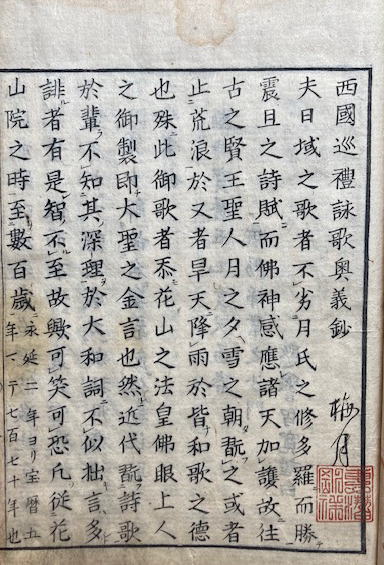 西國巡禮詠歌奥義鈔 梅月
夫日域之歌者不劣月氏之修多羅而勝
震旦之詩賦而佛神感應諸天加護故往
古之賢王聖人月之夕雪之朝翫之或者
止荒浪於又者旱天降雨於皆和歌之德
也殊此御歌者忝花山之法皇佛眼上人
之御製即大聖之金言也然近代翫詩歌
於輩不知其深理於大和詞不似拙言多
誹者有是智不至故歟可笑可恐凡從花
山院之時至數百歳永延二年ヨリ宝暦五年マテ七百七十年也